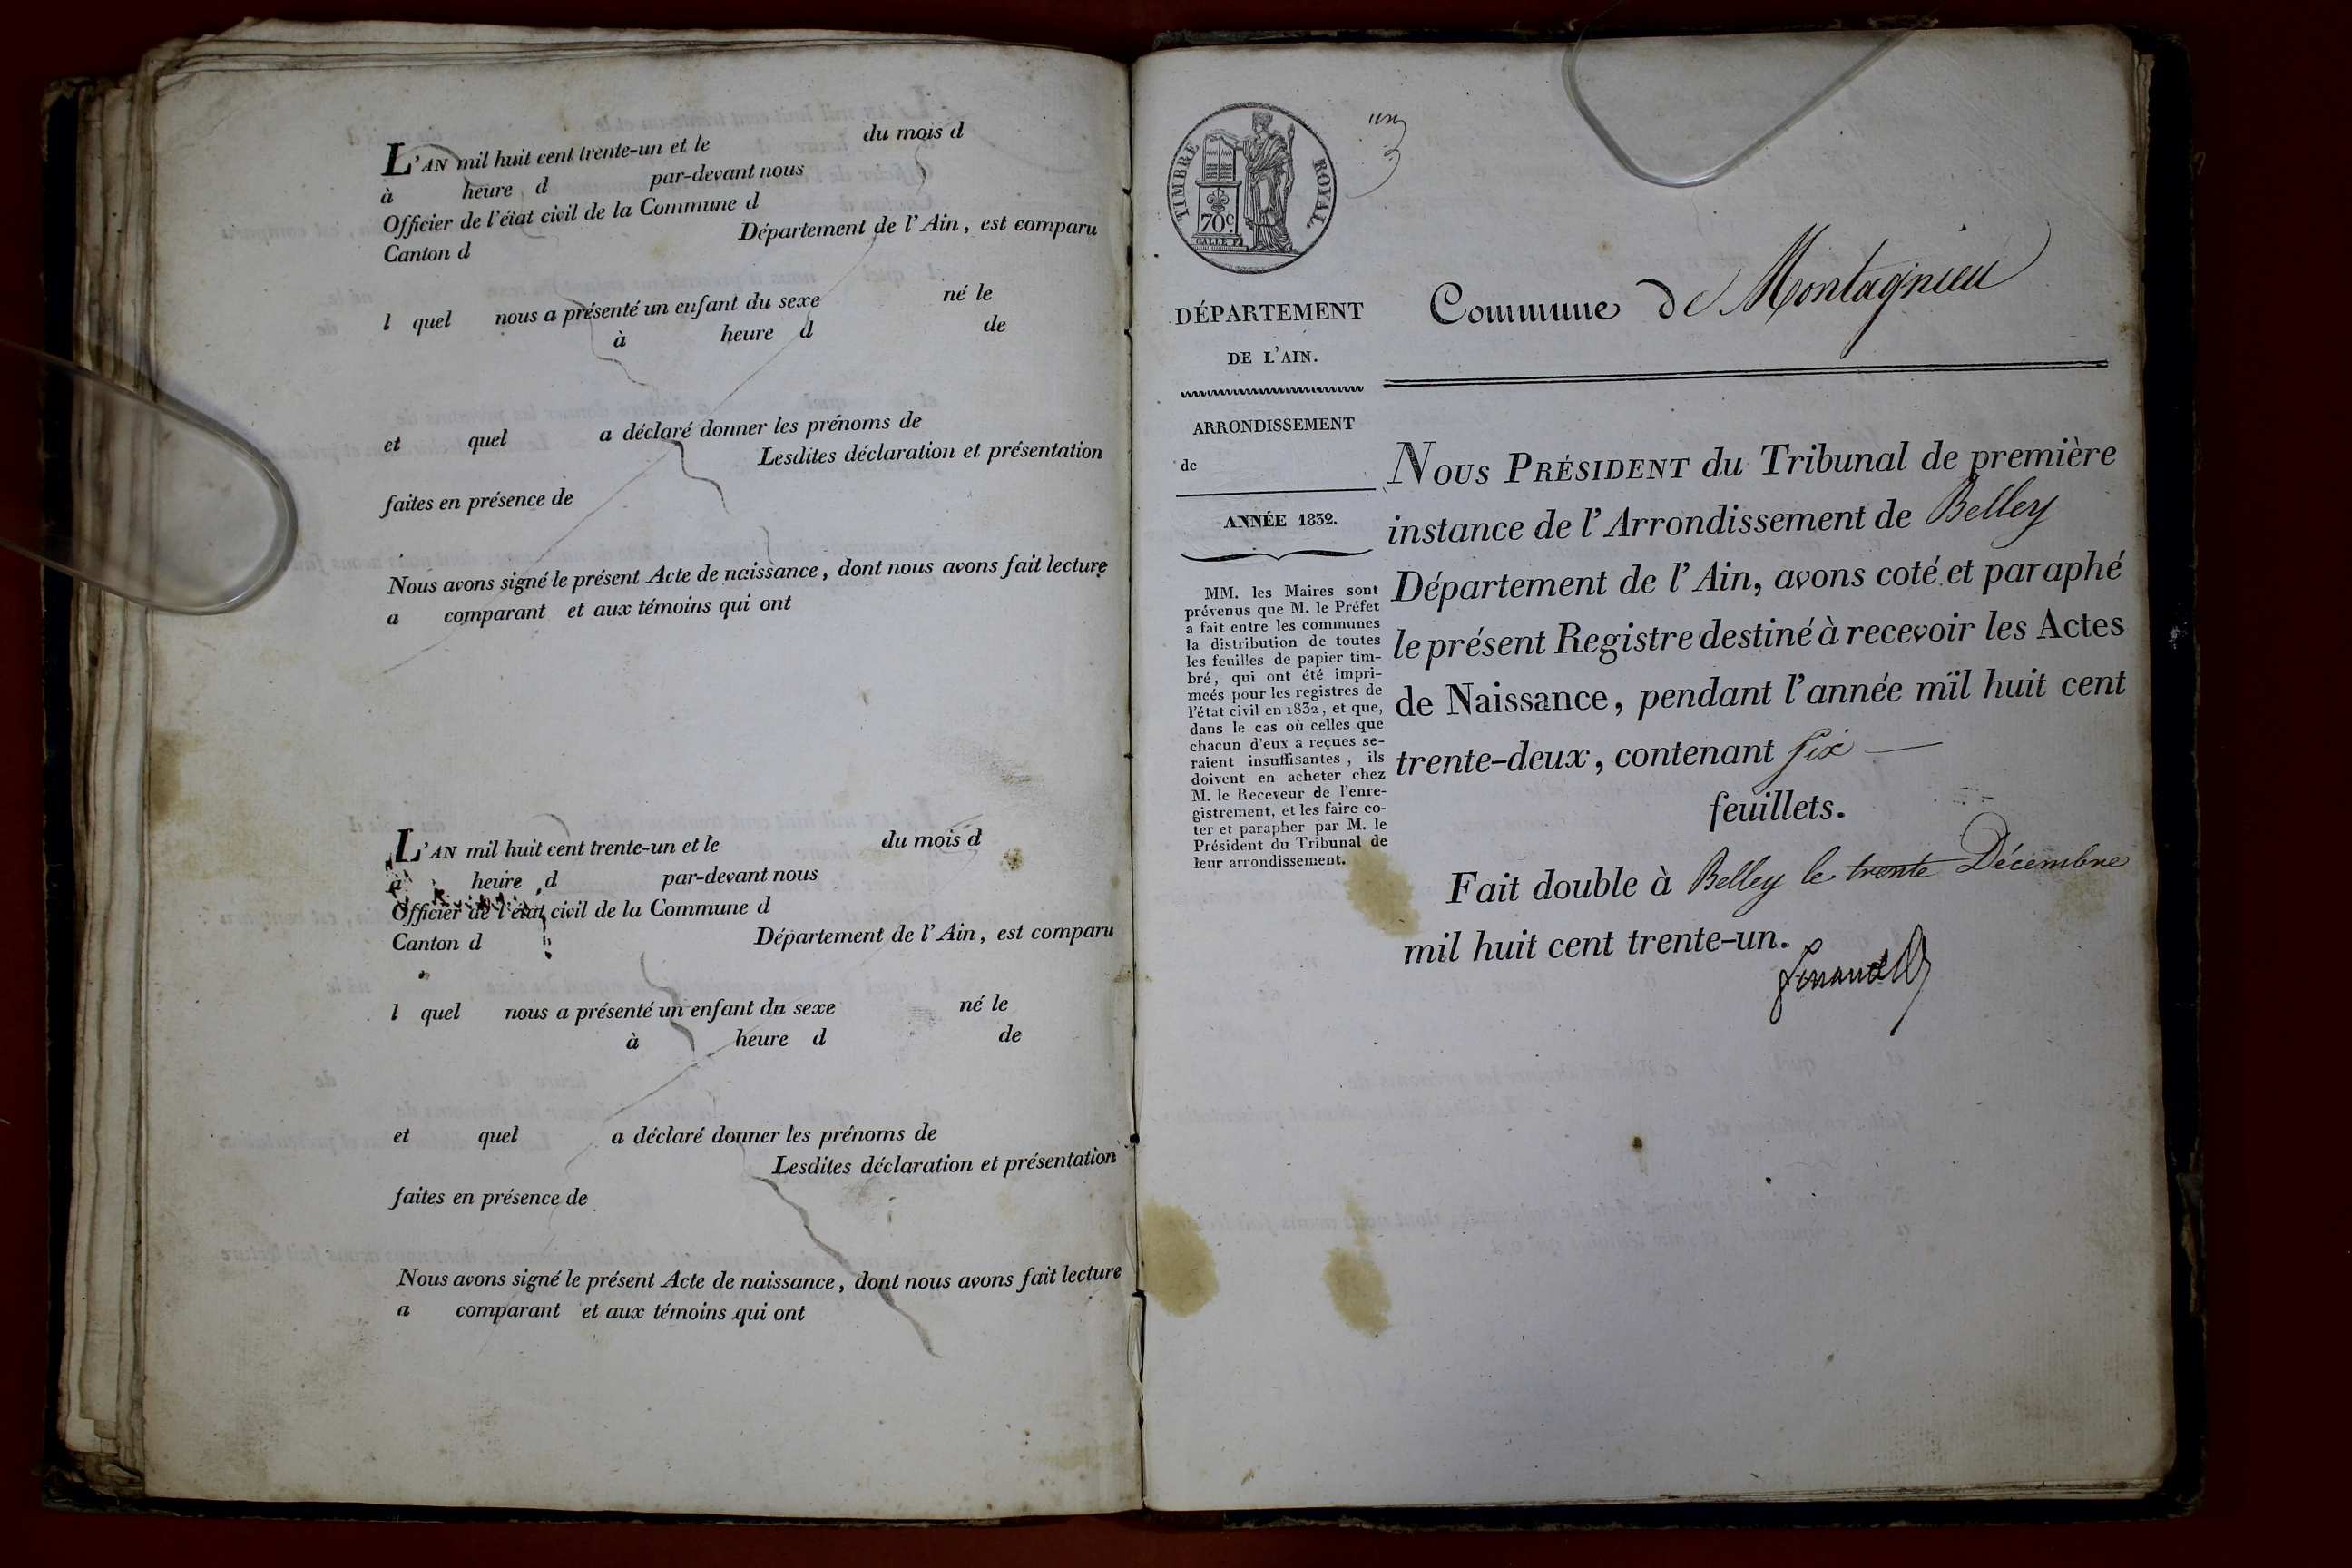 L'AN mil huit cent trente-un et le du mois d
à heure d par-devant nous
Officier de l'état civil de la Commune d
Canton d Département de l'Ain, est comparu
l quel nous a présenté un enfant du sexe né le
à heure d de
et quel a déclaré donner les prénoms de
Lesdites déclaration et présentation
faites en présence de
Nous avons signé le présent Acte de naissance, dont nous avons fait lecture
a comparant et aux témoins qui ont
L'AN mil huit cent trente-un et le du mois d
à heure d par-devant nous
Officier de l'état civil de la Commune d
Canton d Département de l'Ain, est comparu
l quel nous a présenté un enfant du sexe né le
à heure d de
et quel a déclaré donner les prénoms de
Lesdites déclaration et présentation
faites en présence de
Nous avons signé le présent Acte de naissance, dont nous avons fait lecture
a comparant et aux témoins qui ont
TIMBRE ROYAL
70 c.
GALLE F.
un
DÉPARTEMENT
DE L'AIN.
ARRONDISSEMENT
de
ANNÉE 1832.
MM. les Maires sont
prévenus que M. le Préfet
a fait entre les communes
la distribution de toutes
les feuilles de papier tim-
bré, qui ont été impri-
meés pour les registres de
l'état civil en 1832, et que,
dans le cas où celles que
chacun d'eux a reçues se-
raient insuffisantes, ils
doivent en acheter chez
M. le Receveur de l'enre-
gistrement, et les faire co-
ter et parapher par M. le
Président du Tribunal de
leur arrondissement.
Commune de Montagnieu
NOUS PRÉSIDENT du Tribunal de première
instance de l'Arrondissement de Belley
Département de l'Ain, avons coté et paraphé
le présent Registre destiné à recevoir les Actes
de Naissance, pendant l'année mil huit cent
trente-deux, contenant Six
feuillets.
Fait double à Belley le trente Décembre
mil huit cent trente-un.